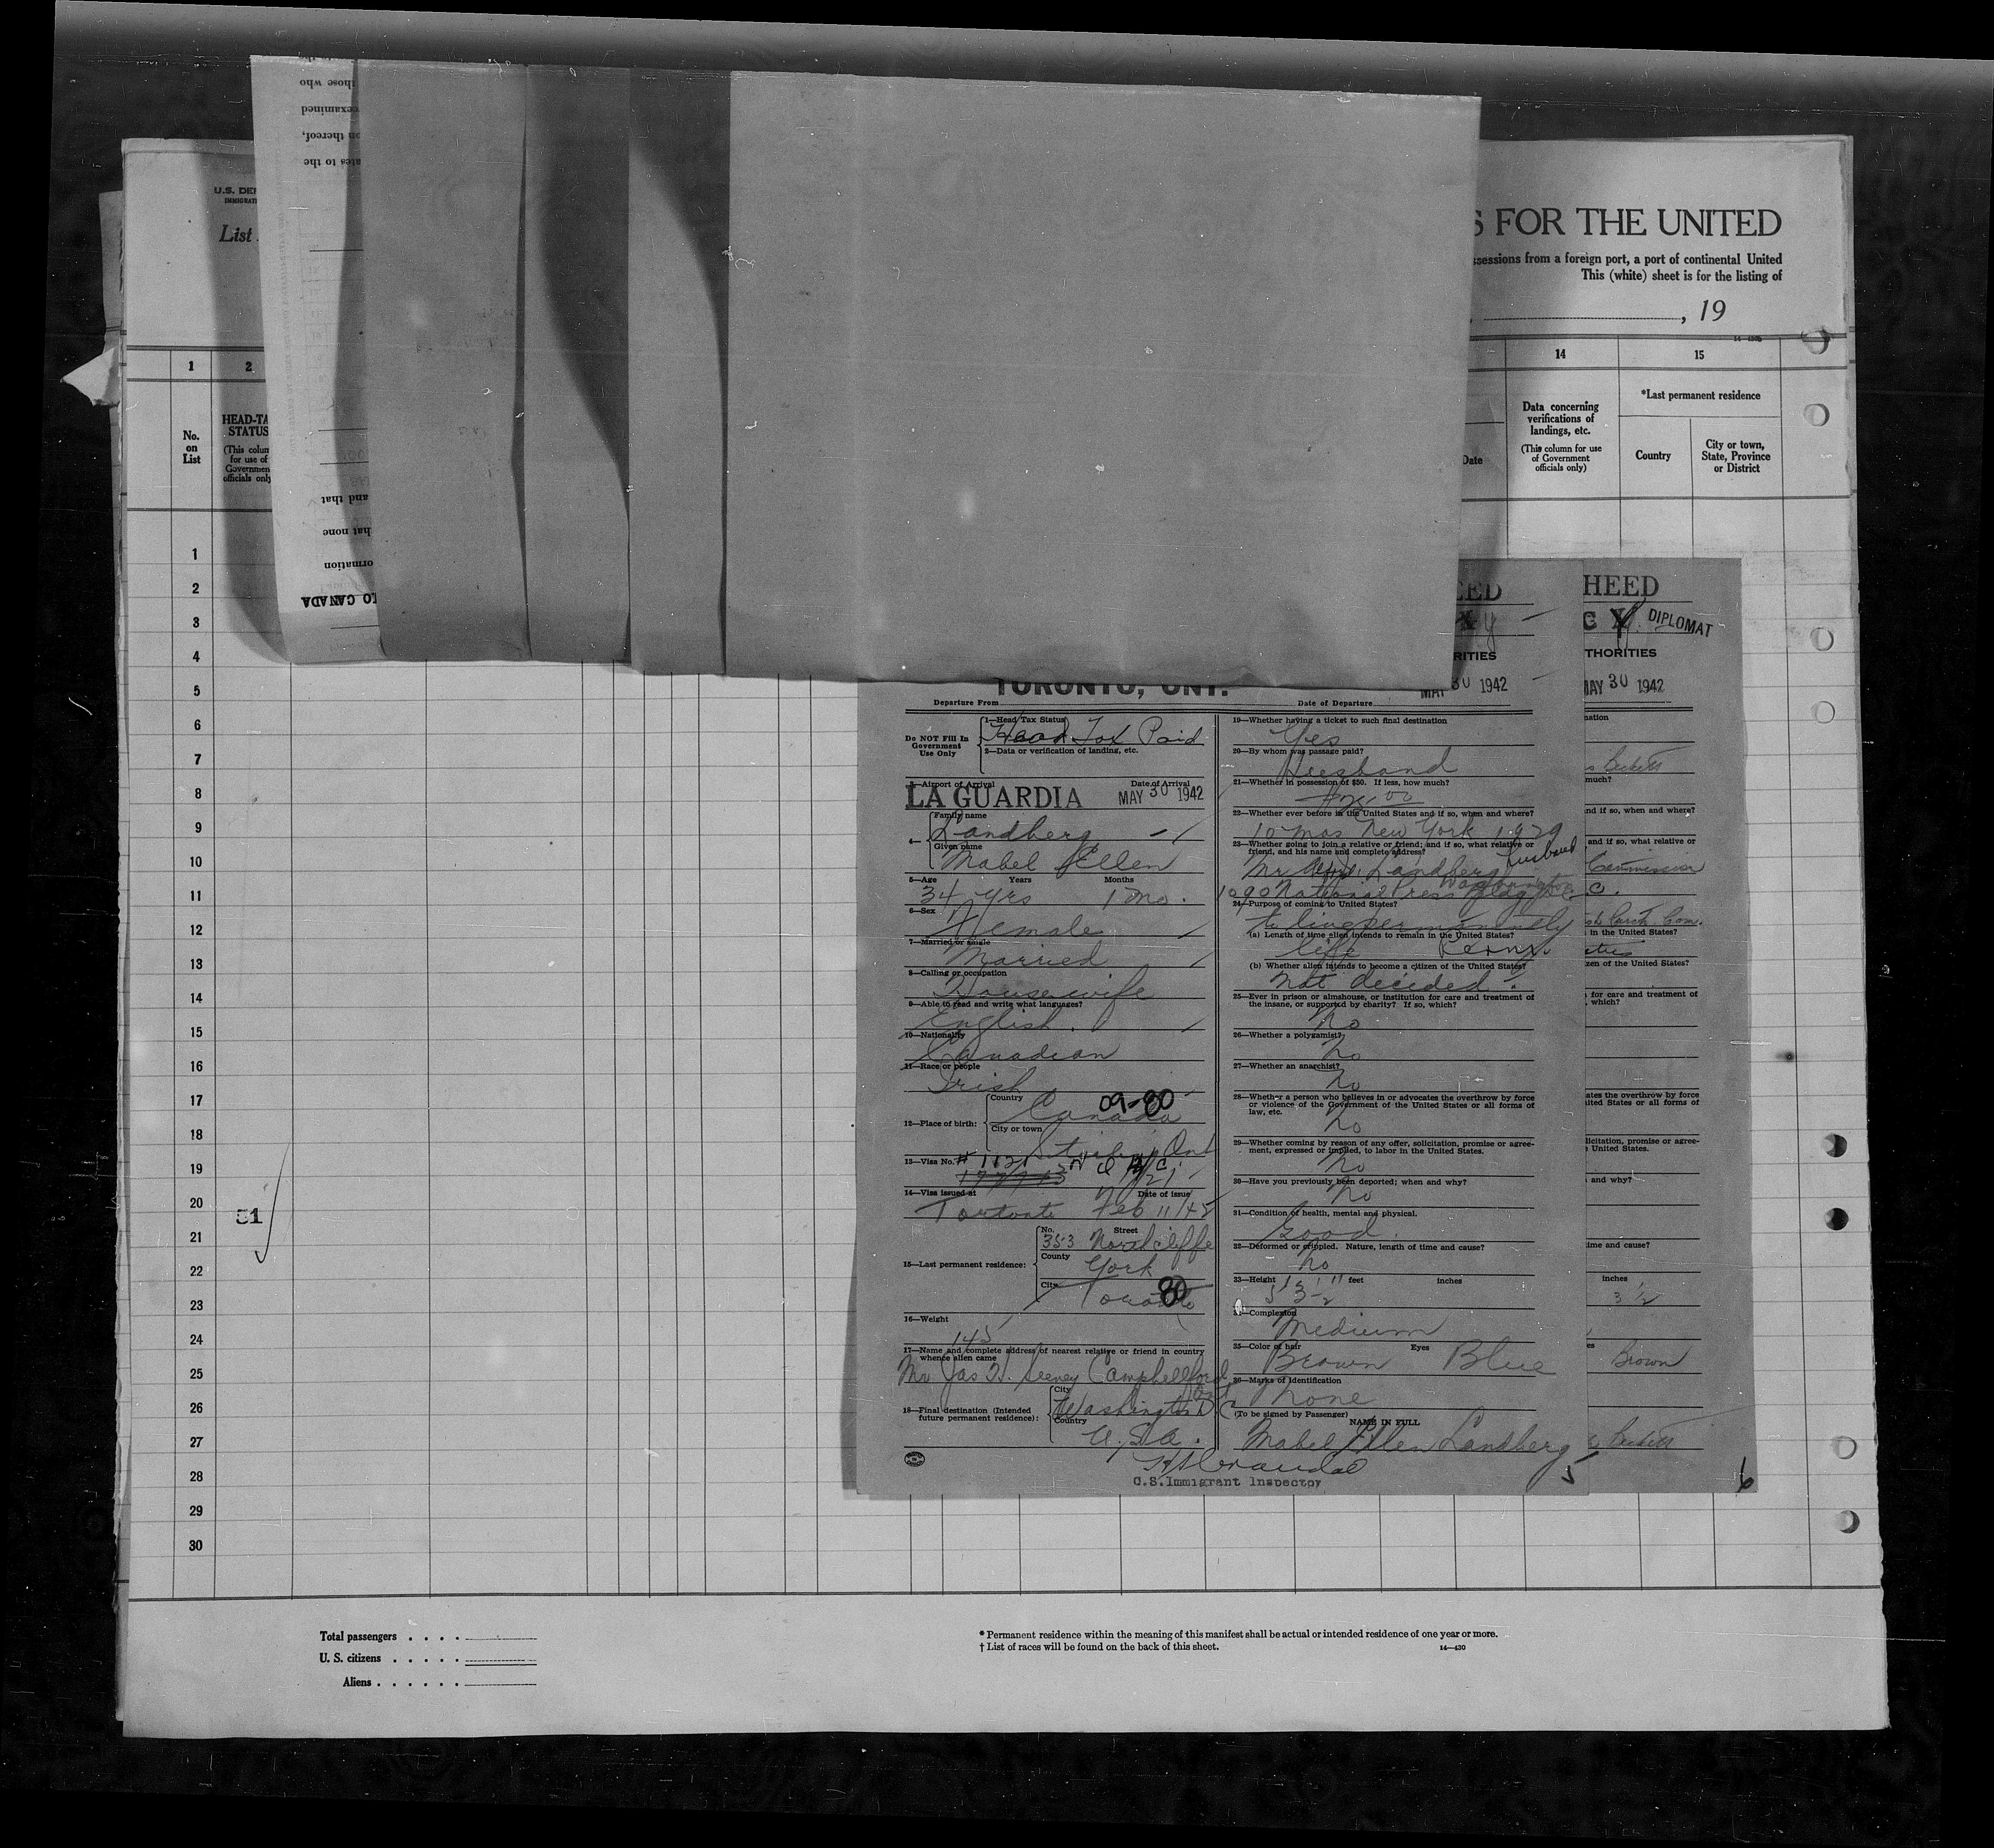 those who
examined
on thereof,
ates to the
U.S. DEP
IMMIGRATI
List
S FOR THE UNITED
ssessions from a foreign port, a port of continental United
This (white) sheet is for the listing of
, 19
1
2
14
15
No.
on
List
HEAD-TA
STATUS
(This colum
for use of
Governmen
officials only
Date
Data concerning
verifications of
landings, etc.
(This column for use
of Government
officials only)
*Last permanent residence
Country
City or town,
State, Province
or District
and that
hat none
ormation
LO CANADA
1
2
3
4
5
6
7
8
9
10
11
12
13
14
15
16
17
18
19
20
51
21
22
23
24
25
26
27
28
29
30
EED
RITIES
TORONTO, ONT.
MAY 30 1942
Departure From
Date of Departure
Do NOT Fill In
Government
Use Only
1—Head Tax Status
Head Tax Paid
2—Data or verification of landing, etc.
3—Airport of Arrival
Date of Arrival
LA GUARDIA
MAY 30 1942
4—
Family name
Landberg
Given name
Mabel Ellen
5—Age Years Months
34 yrs 1 mo.
6—Sex
Female
7—Married or single
Married
8—Calling or occupation
Housewife
9—Able to read and write what languages?
English.
10—Nationality
Canadian
11—Race or people
Irish
12—Place of birth:
Country
Canada
09-80
City or town
Ont
13—Visa No.
14—Visa issued at
Date of issue
Toronto Feb 11/42
15—Last permanent residence:
No. Street
353 Northcliffe
County
York
City
Toronto
80
16—Weight
145
17—Name and complete address of nearest relative or friend in country
whence alien came
Mr Jas H. Seeney Campbellford
Ont
18—Final destination (Intended
future permanent residence):
City
Washington D.C.
Country
U.S.A.
19—Whether having a ticket to such final destination
Yes
20—By whom was passage paid?
Husband
21—Whether in possession of $50. If less, how much?
22—Whether ever before in the United States and if so, when and where?
10 mos New York 1929
23—Whether going to join a relative or friend; and if so, what relative or
friend, and his name and complete address?
husband
Mr Landberg
1090 National Press Bldg Washington D.C.
24—Purpose of coming to United States?
to live permanently
(a) Length of time alien intends to remain in the United States?
life Perm.
(b) Whether alien intends to become a citizen of the United States?
not decided.
25—Ever in prison or almshouse, or institution for care and treatment of
the insane, or supported by charity? If so, which?
no
26—Whether a polygamist?
no
27—Whether an anarchist?
no
28—Whether a person who believes in or advocates the overthrow by force
or violence of the Government of the United States or all forms of
law, etc.
no
29—Whether coming by reason of any offer, solicitation, promise or agree-
ment, expressed or implied, to labor in the United States.
no
30—Have you previously been deported; when and why?
no
31—Condition of health, mental and physical.
Good.
32—Deformed or crippled. Nature, length of time and cause?
no
33—Height feet inches
34—Complexion
Medium
35—Color of hair Eyes
Brown Blue
36—Marks of identification
none
(To be signed by Passenger)
NAME IN FULL
Mabel Ellen Landberg
5
U.S.Immigrant Inspector
HEED
DIPLOMAT
THORITIES
MAY 30 1942
nation
s Beckett
much?
nd if so, when and where?
and if so, what relative or
Commission
C.
in the United States?
zen of the United States?
for care and treatment of
, which?
ates the overthrow by force
ited States or all forms of
licitation, promise or agree-
United States.
and why?
ime and cause?
inches
3 1/2
es
Brown
Beckett
6
Total passengers . . . .
U. S. citizens . . . . .
Aliens . . . . . .
* Permanent residence within the meaning of this manifest shall be actual or intended residence of one year or more.
† List of races will be found on the back of this sheet.
14—430